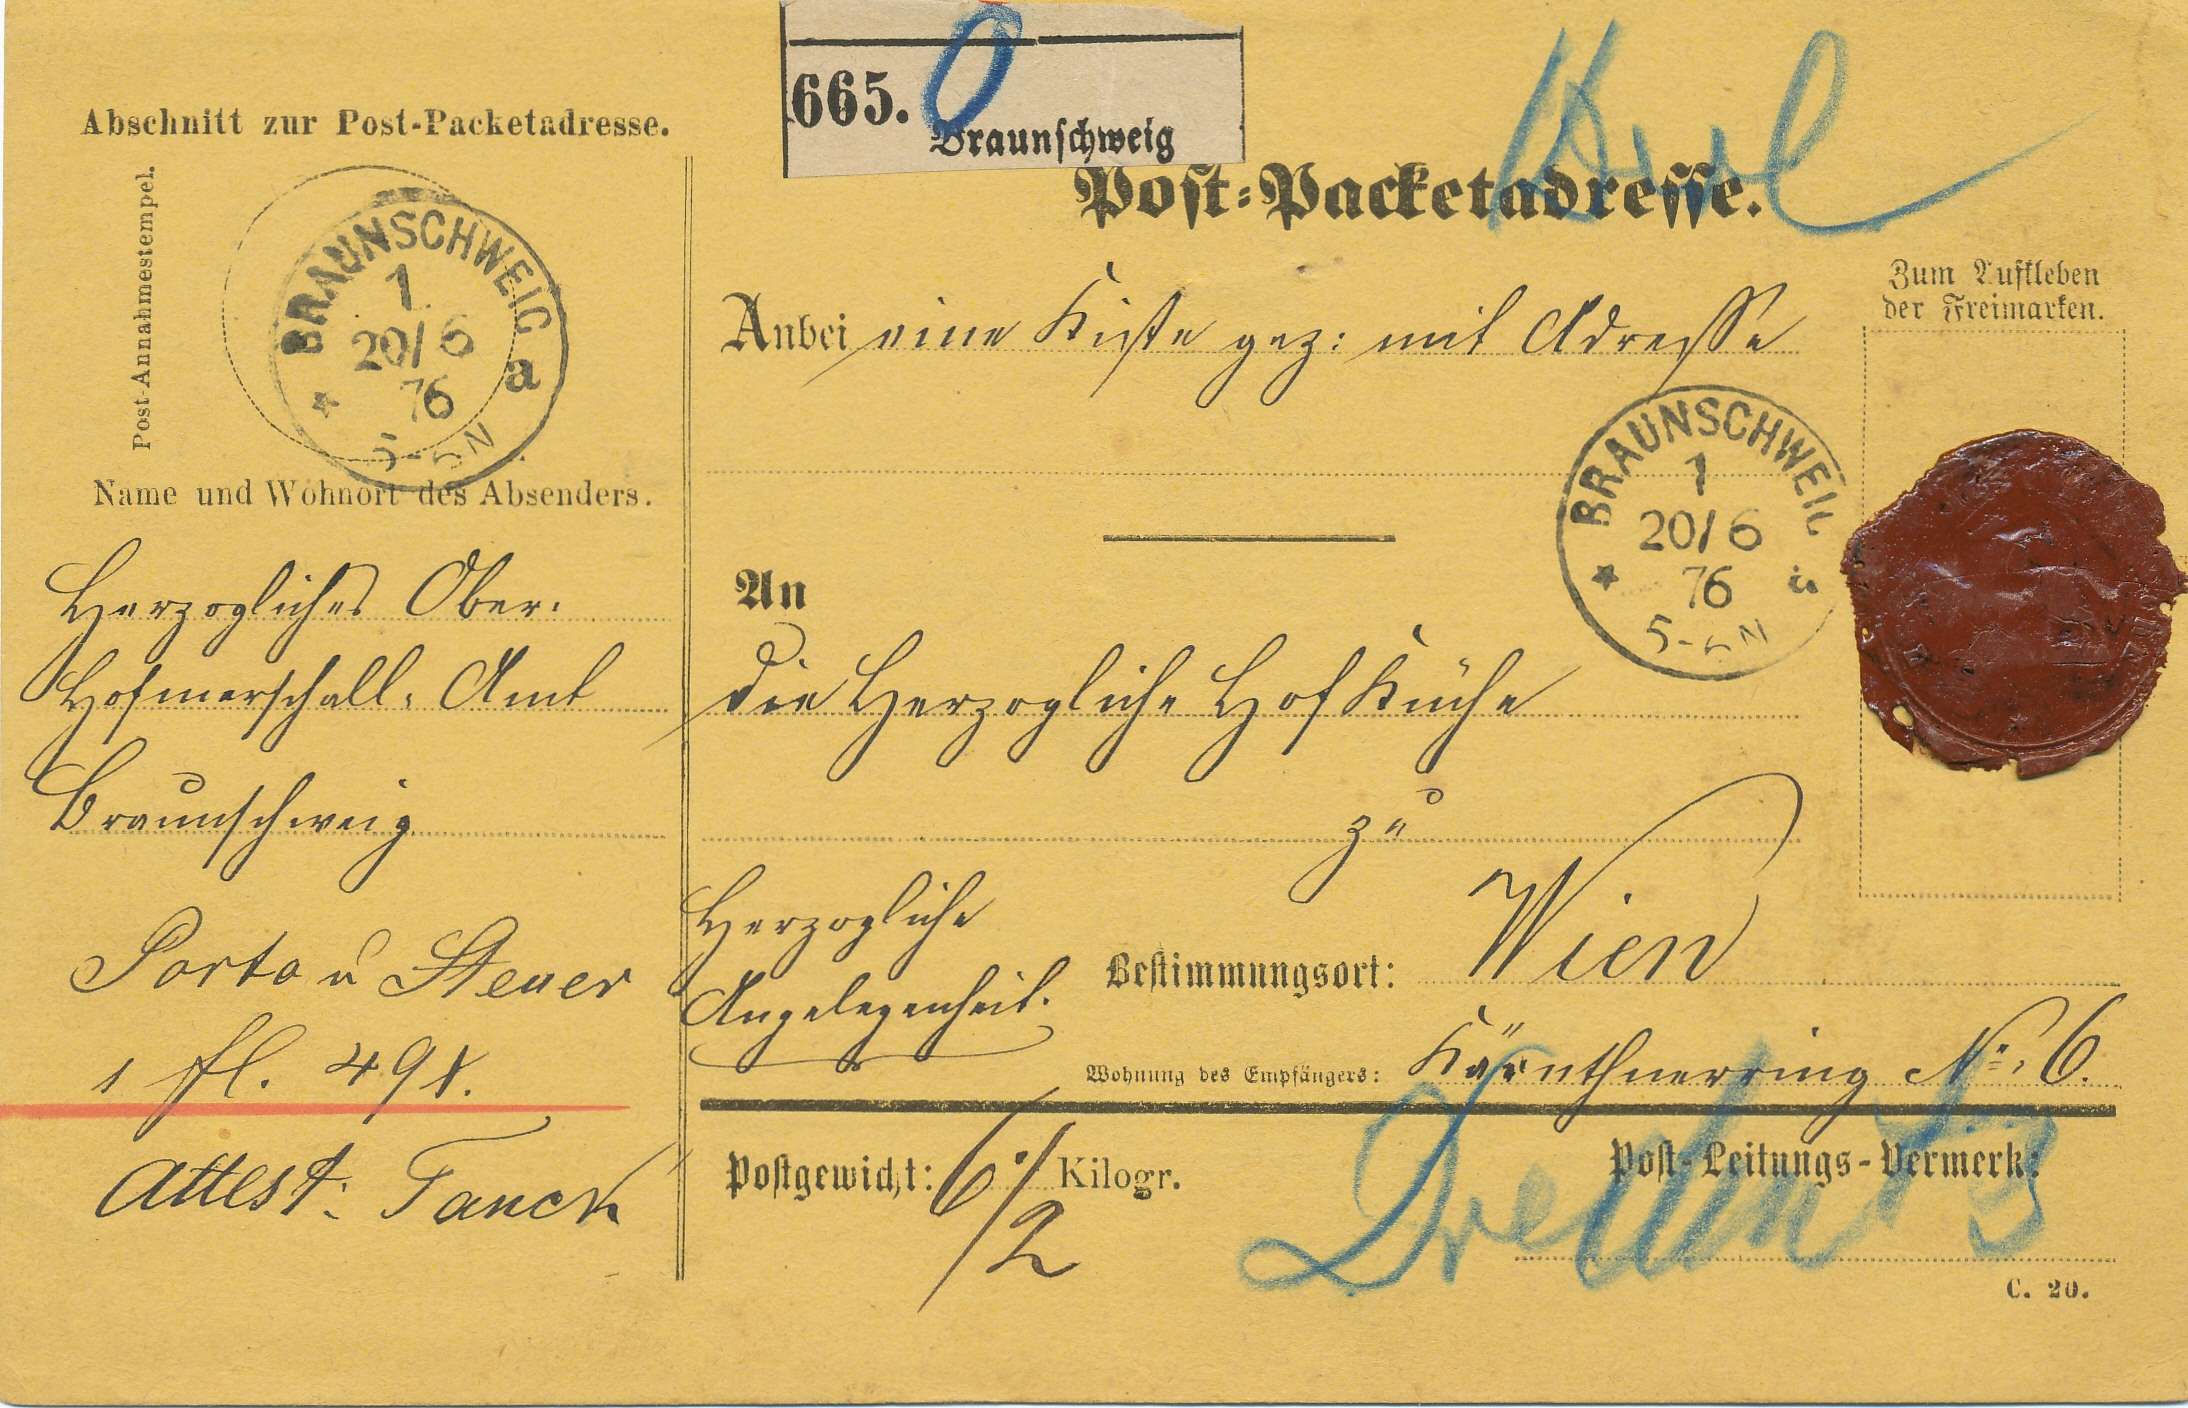 665.
Braunschweig
Abschnitt zur Post-Packetadresse.
Post-Annahmestempel.
BRAUNSCHWEIG
1
20/6
76
a
5-6N
Name und Wohnort des Absenders.
Herzogliches Ober-
Hofmarschall-Amt
Braunschweig
Porto u Steuer
1 fl. 49 x.
Attest: Fanck
Post-Packetadresse.
Zum Aufkleben
der Freimarken.
Anbei eine Kiste gez: mit Adresse
BRAUNSCHWEIG
1
20/6
76
5-6N
An
die Herzogliche Hof Küche
zu
Herzogliche
Angelegenheit.
Bestimmungsort: Wien
Wohnung des Empfängers: Kärnthnerring No. 6.
Postgewicht: 6 1/2 Kilogr.
Post-Leitungs-Vermerk:
C. 20.